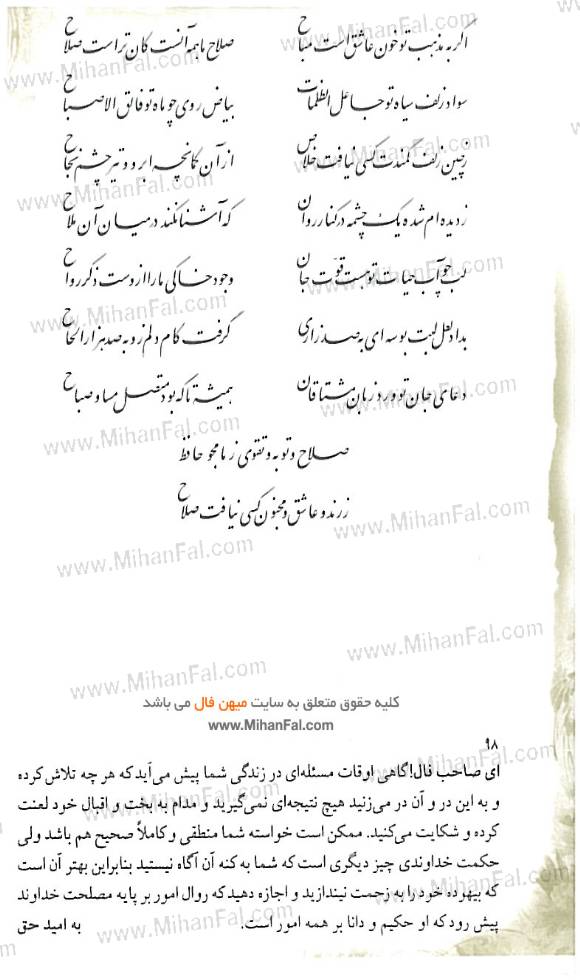 اگر به مذهب تو خون عاشق است مباح صلاح ما همه آنست کان تراست صلاح
سواد زلف سیاه تو جاعل الظلمات بیاض روی چو ماه تو فالق الاصباح
ز چین زلف کمندت کسی نیافت خلاص از آن کمانچه ابرو و تیر چشم نجاح
ز دیده ام شده یک چشمه در کنار روان که آشنا نکند در میان آن ملاح
لب چو آب حیات تو هست قوت جان وجود خاکی ما را از وست ذکر رواح
بداد لعل لبت بوسه ای به صد زاری گرفت کام دلم زو به صد هزار الحاح
دعای جان تو ورد زبان مشتاقان همیشه تا که بود متصل مسا و صباح
صلاح و توبه و تقوی ز ما مجو حافظ
ز رند و عاشق و مجنون کسی نیافت صلاح
کلیه حقوق متعلق به سایت میهن فال می باشد
www.MihanFal.com
۹۸
ای صاحب فال! گاهی اوقات مسئله‌ای در زندگی شما پیش می‌آید که هر چه تلاش کرده
و به این در و آن در می‌زنید هیچ نتیجه‌ای نمی‌گیرید و مدام به بخت و اقبال خود لعنت
کرده و شکایت می‌کنید. ممکن است خواسته شما منطقی و کاملاً صحیح هم باشد ولی
حکمت خداوندی چیز دیگری است که شما به کنه آن آگاه نیستید بنابراین بهتر آن است
که بیهوده خود را به زحمت نیندازید و اجازه دهید که روال امور بر پایه مصلحت خداوند
پیش رود که او حکیم و دانا بر همه امور است. به امید حق